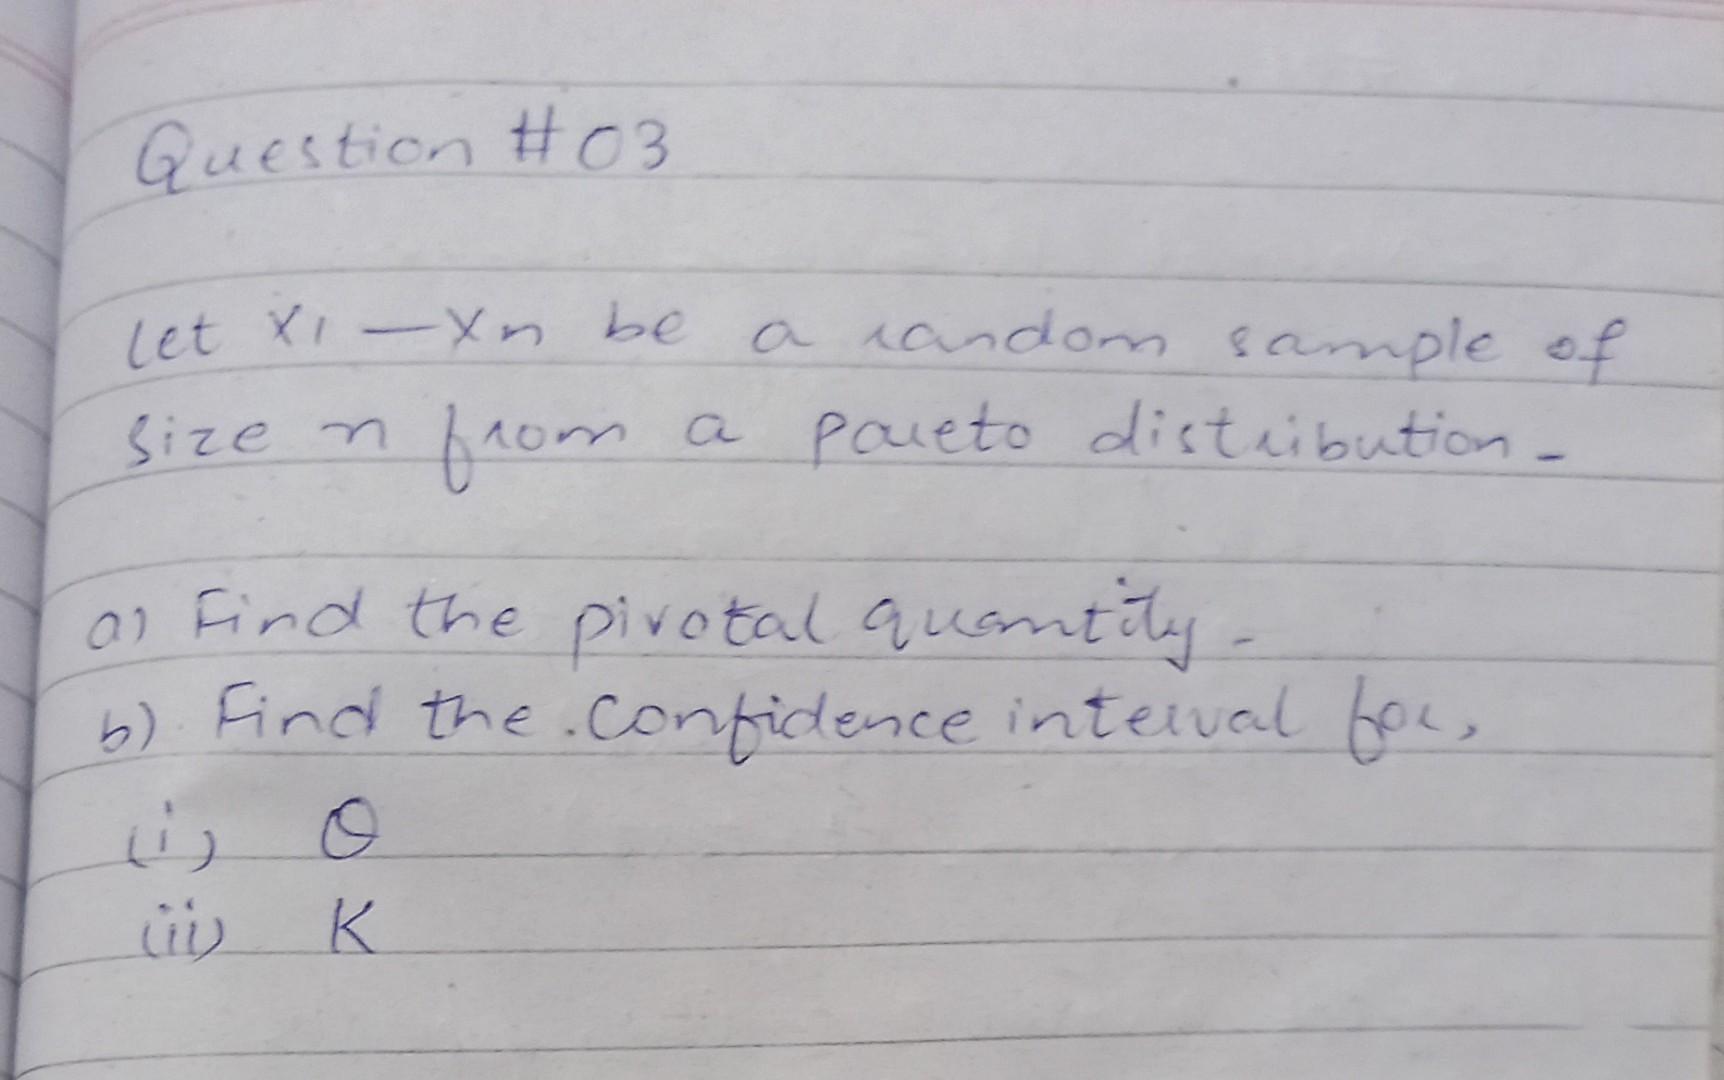 Question #03
Let X1 — Xn be a random sample of
size n from a pareto distribution -
a) Find the pivotal quantity -
b) Find the confidence interval for,
(i) θ
(ii) K